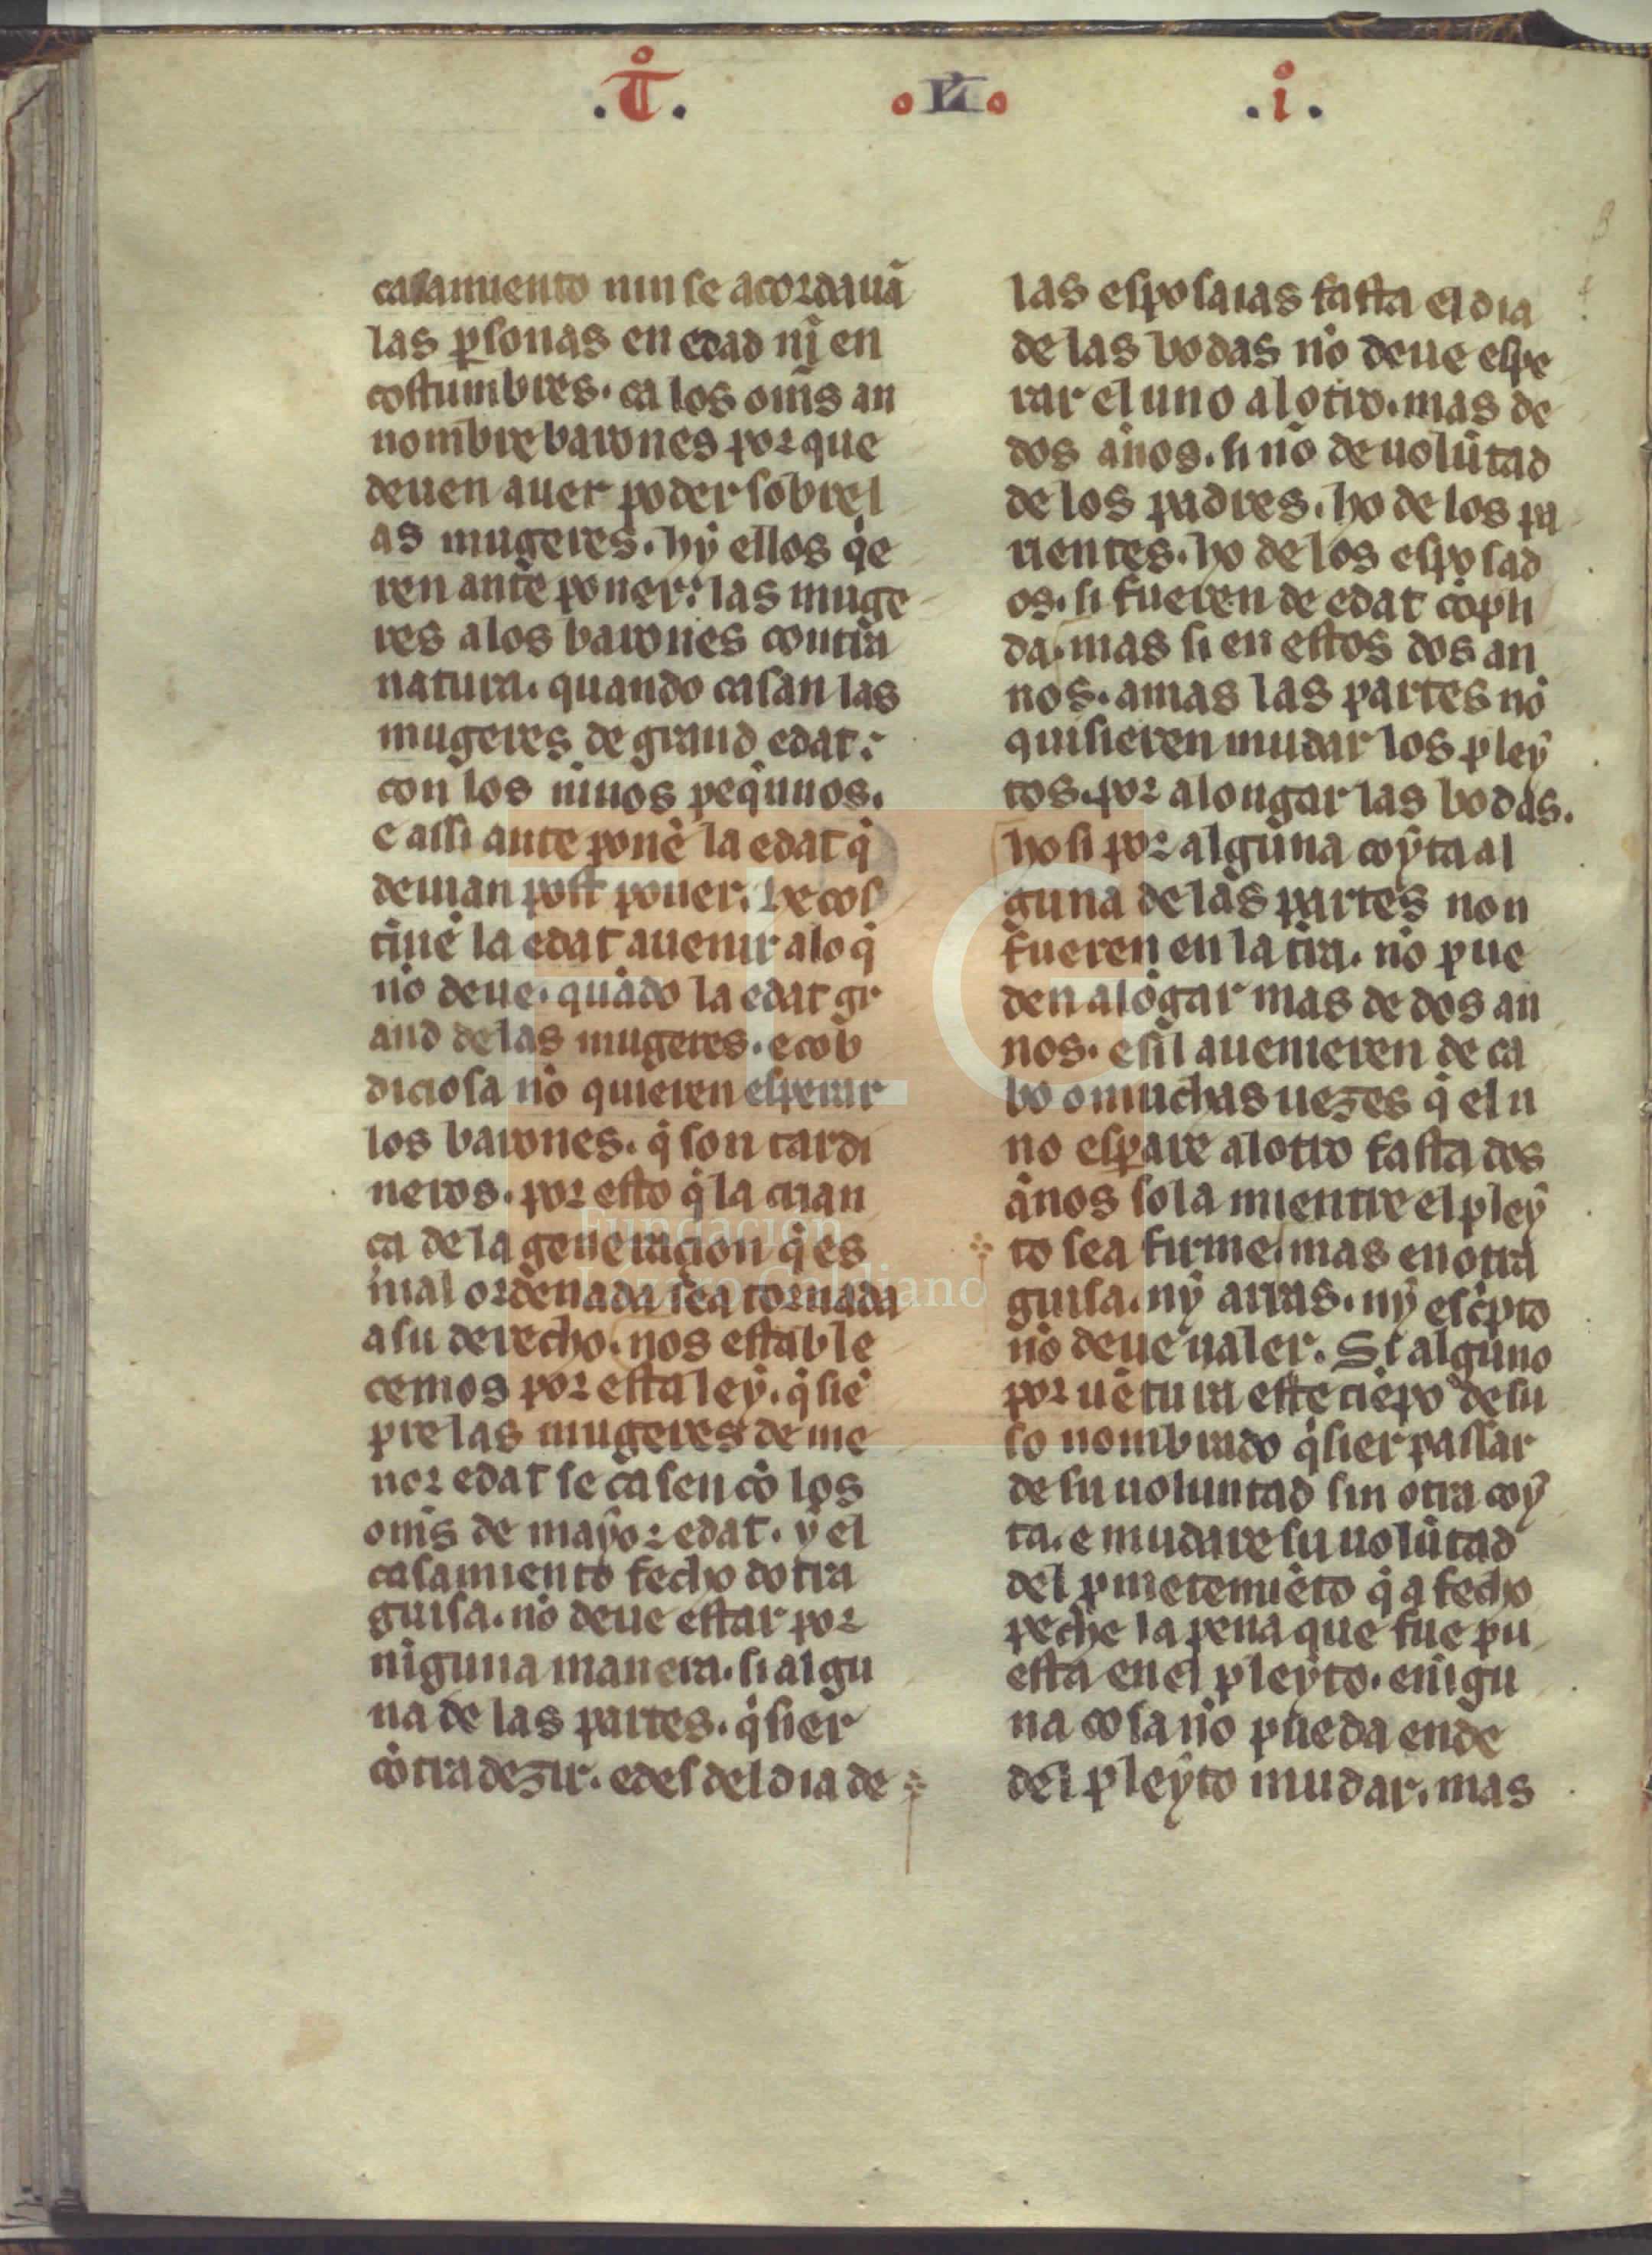 .T̄. .N. .i.
casamiento nin se acordauã
las ꝑsonas en edad nĩ en
costumbres. ca los om̃s an
nombre barones por que
deuen auer poder sobrel
as mugeres. hy ellos q̃e
ren ante poner: las muge
res alos barones contra
natura. quando casan las
mugeres de grand edat:
con los ninos pequinos.
e assi ante ponẽ la edat q̃
deuian post poner. he cos
tinẽ la edat auenir alo q̃
nõ deue. quãdo la edat gr
and delas mugeres. e cob
diciosa nõ quieren esperar
los barones. q̃ son tardi
neros. por esto q̃ la crian
ça de la generacion q̃ es
mal ordenada sea tornada
a su derecho. nos estable
cemos por esta ley. q̃ siẽ
pre las mugeres de me
nor edat se casen cõ los
om̃s de mayor edat. y el
casamiento fecho dotra
guisa. nõ deue estar por
niguna manera. si algu
na de las partes. q̃sier
cõtradezir. e desdel dia de
las esposaias fasta el dia
de las bodas nõ deue espe
rar el uno al otro. mas de
dos ãnos. si nõ de uolũtad
de los padres. ho de los pa
rientes. ho de los esposad
os. si fueren de edat cõpli
da. mas si en estos dos an
nos. amas las partes nõ
quisieren mudar los pley
tos. por alongar las bodas.
ho si por alguna coyta al
guna de las partes non
fueren en la tr̃a. nõ pue
den alõgar mas de dos an
nos. e sil auenieren de ca
bo o muchas uezes q̃ el u
no esꝑare al otro fasta dos
ãnos sola mientre el pley
to sea firme. mas en otra
guisa. ny arras. ny esc̃pto
nõ deue ualer. Si alguno
por uẽtura este tiẽpo de su
so nombrado q̃sier passar
de su uoluntad sin otra coy
ta. e mudare su uolũtad
del ꝓmetemiẽto q̃ a fecho
peche la pena que fue pu
esta en el pleyto. e nigu
na cosa nõ pueda ende
del pleyto mudar. mas
Fundación
Lázaro Galdiano